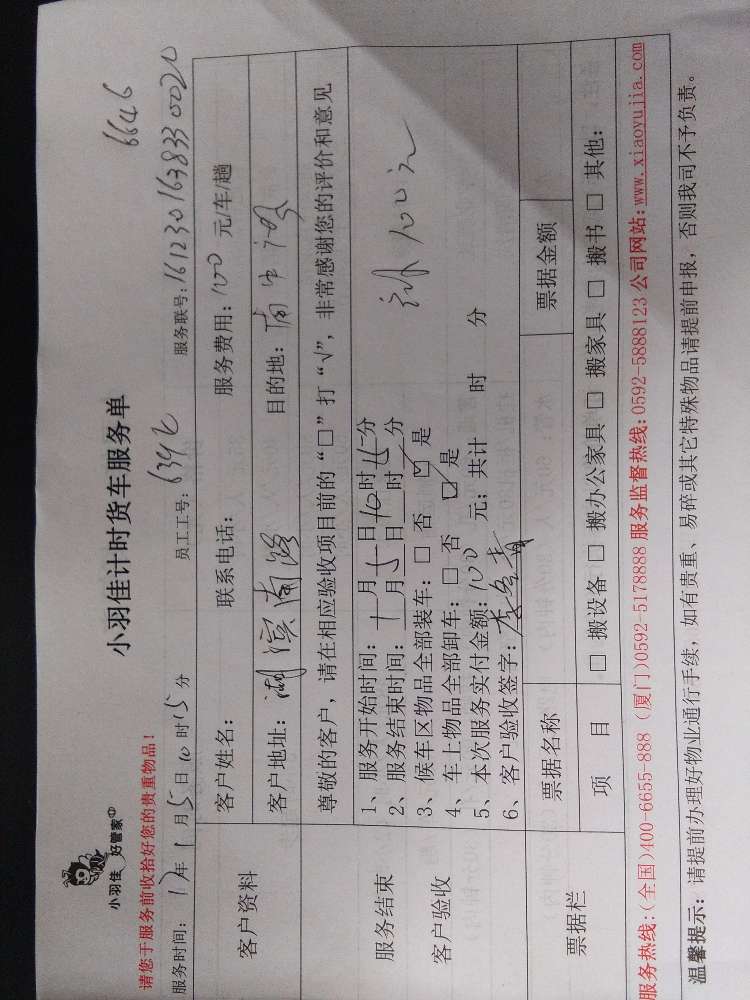 6646
小羽佳计时货车服务单
小羽佳 好管家
请您于服务前收拾好您的贵重物品！
服务时间：17年1月5日10时15分 员工工号：6342 服务联号：1612301638330020
客户资料
客户姓名： 联系电话： 服务费用：100 元/车/趟
客户地址：湖滨南路 目的地：
服务结束
客户验收
尊敬的客户，请在相应验收项目前的“□”打“√”，非常感谢您的评价和意见
1、服务开始时间：1月5日10时15分
2、服务结束时间：1月5日 时 分
3、候车区物品全部装车：□ 否 ☑ 是
4、车上物品全部卸车：□ 否 ☑ 是
5、本次服务实付金额：100 元；共计 时 分
6、客户验收签字：
100元
票据栏
票据名称 票据金额
项 目 □ 搬设备 □ 搬办公家具 □ 搬家具 □ 搬书 □ 其他：
服务热线：（全国）400-6655-888（厦门）0592-5178888 服务监督热线：0592-5888123 公司网站：www.xiaoyujia.com
温馨提示：请提前办理好物业通行手续，如有贵重、易碎或其它特殊物品请提前申报，否则我司不予负责。